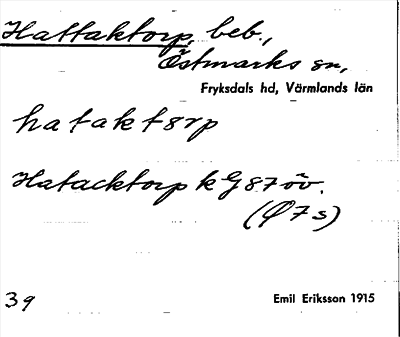 Hattaktorp, beb.,
Östmarks sn,
Fryksdals hd, Värmlands län
hatakt8rp
Hatacktorp k G 87 öv.
(Ø 7 s)
39
Emil Eriksson 1915